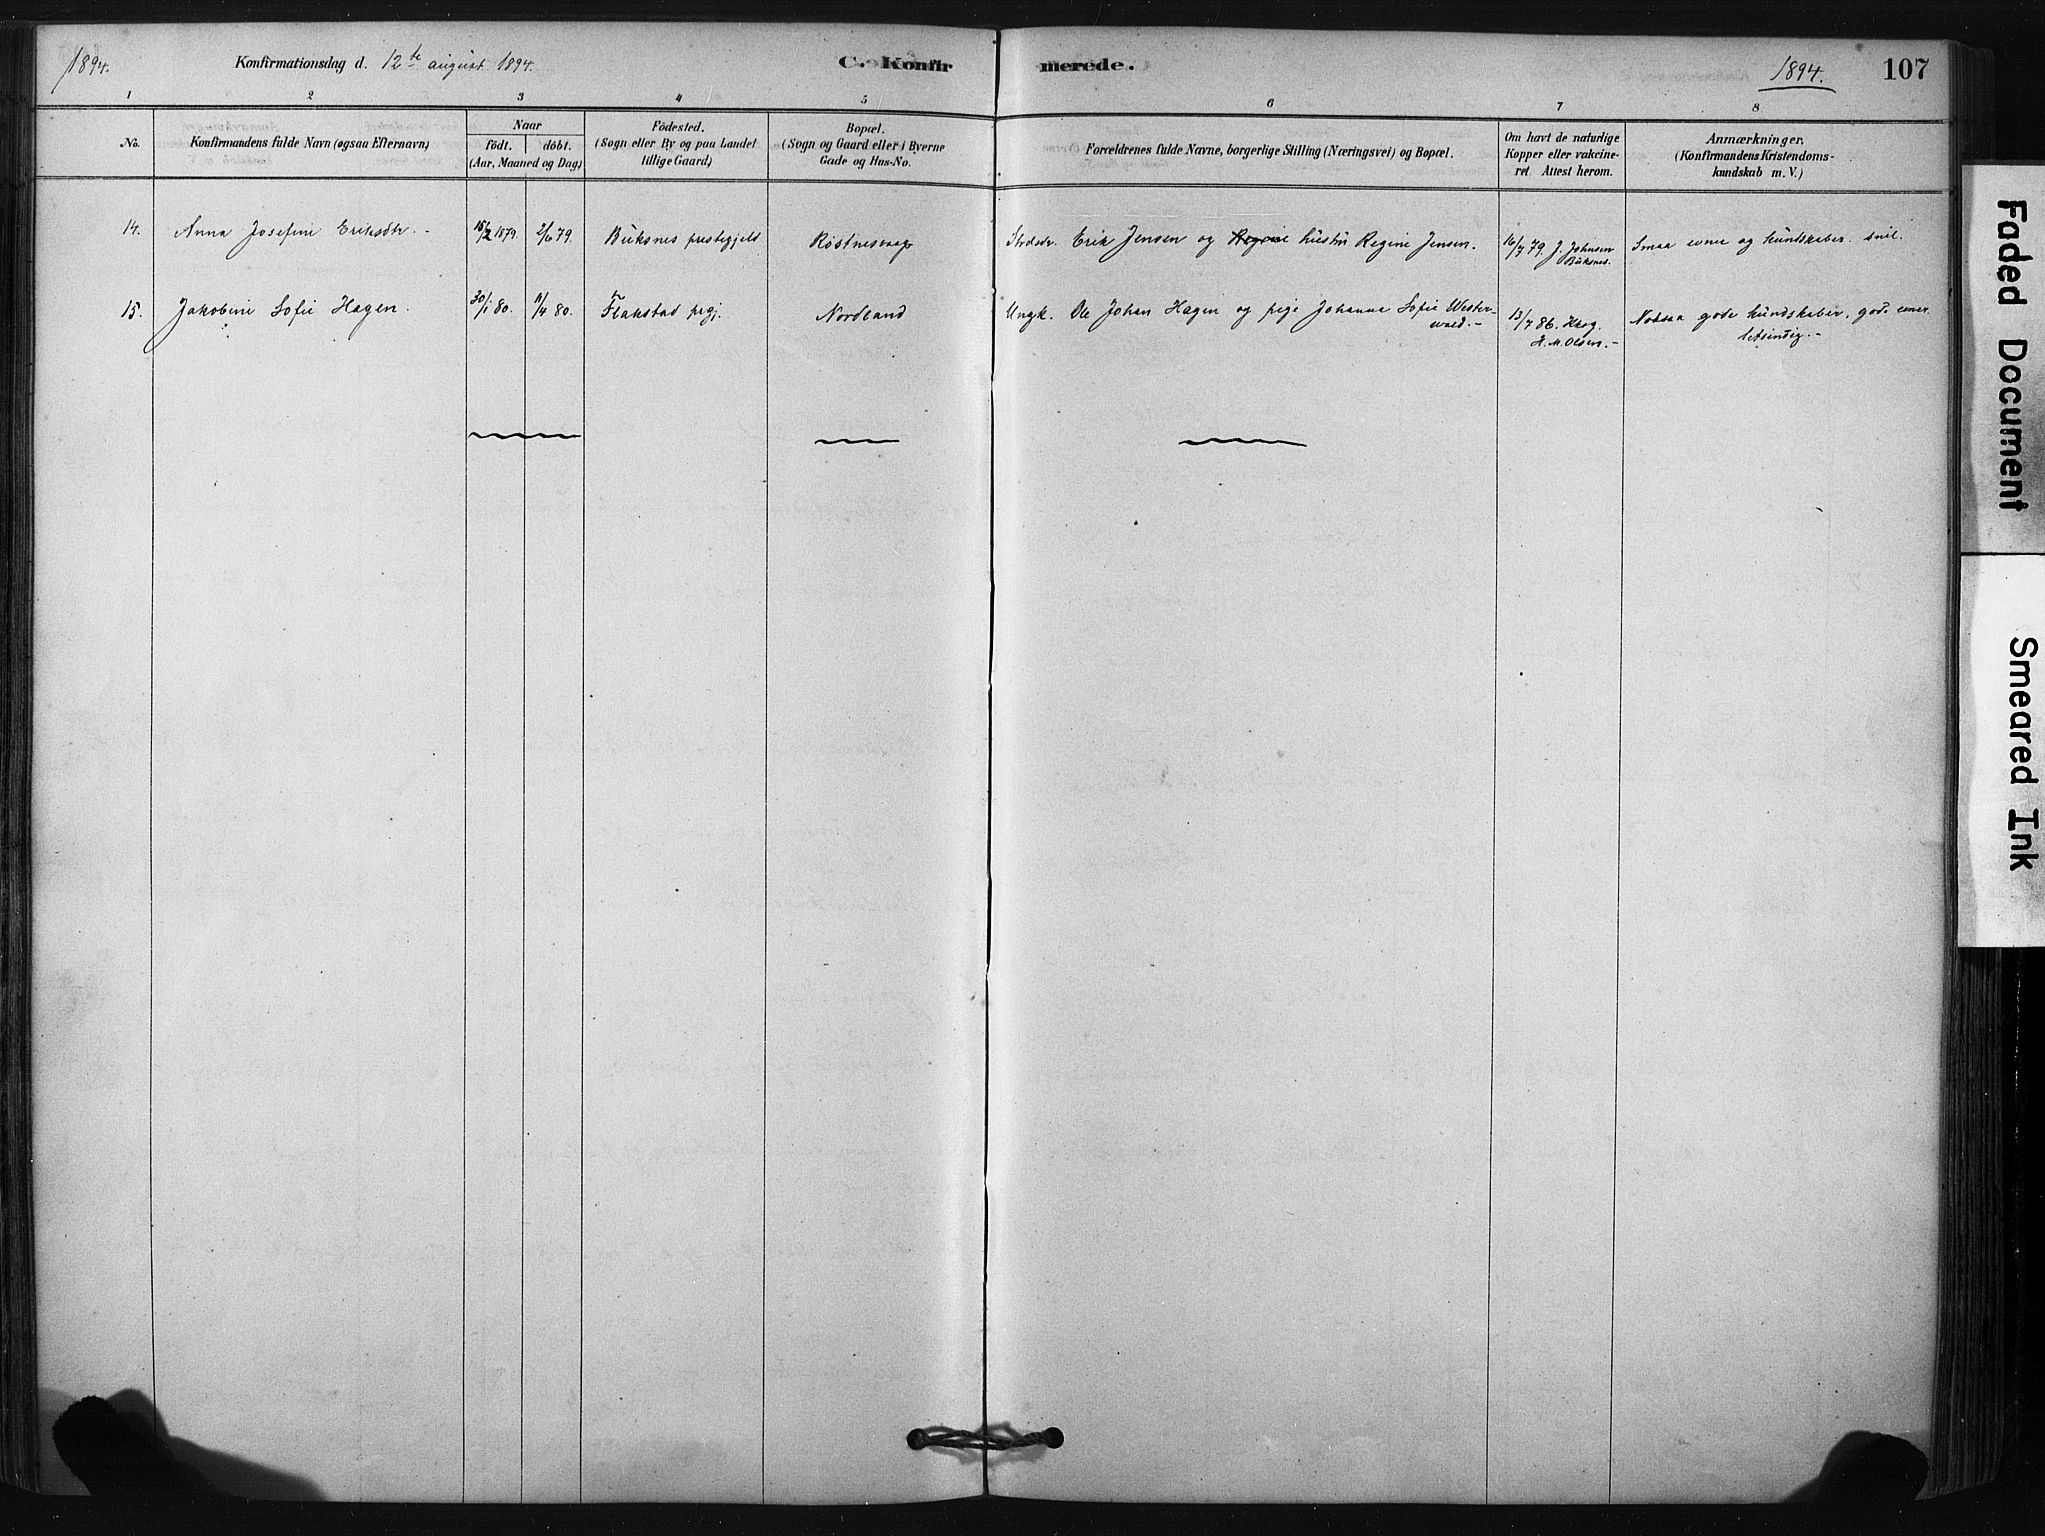 1894. Konfirmationsdag d. 12te august 1894. C. Konfirmerede. 1894. 107
1 2 3 4 5 6 7 8
No.
Konfirmandens fulde Navn (ogsaa Efternavn)
Naar
födt. döbt.
(Aar, Maaned og Dag)
Födested.
(Sogn eller By og paa Landet
tillige Gaard)
Bopæl.
(Sogn og Gaard eller i Byerne
Gade og Hus-No.
Forældrenes fulde Navne, borgerlige Stilling (Næringsvei) og Bopæl.
Om havt de naturlige
Kopper eller vakcine-
ret Attest herom.
Anmærkninger.
(Konfirmandens Kristendoms-
kundskab m. V.)
14. Anna Josefine Eriksdtr. 15/2 1879. 2/6 79. Buksnes prestegjeld Erik Jensen og hustru Regine Jensen. 16/7 79. J. Johnsen Smaa evner og kundskaber. snil.
Buksnes.
15. Jakobine Sofie Hagen. 30/1 80. 11/4 80. Flakstad prgj. Nordland Ungk. Ole Johan Hagen og pige Johanna Sofie Wester- 13/7 86. Noksaa gode kundskaber, gode evner
wald.- H. M. Olsen.- letsindig.-
Faded Document
Smeared Ink